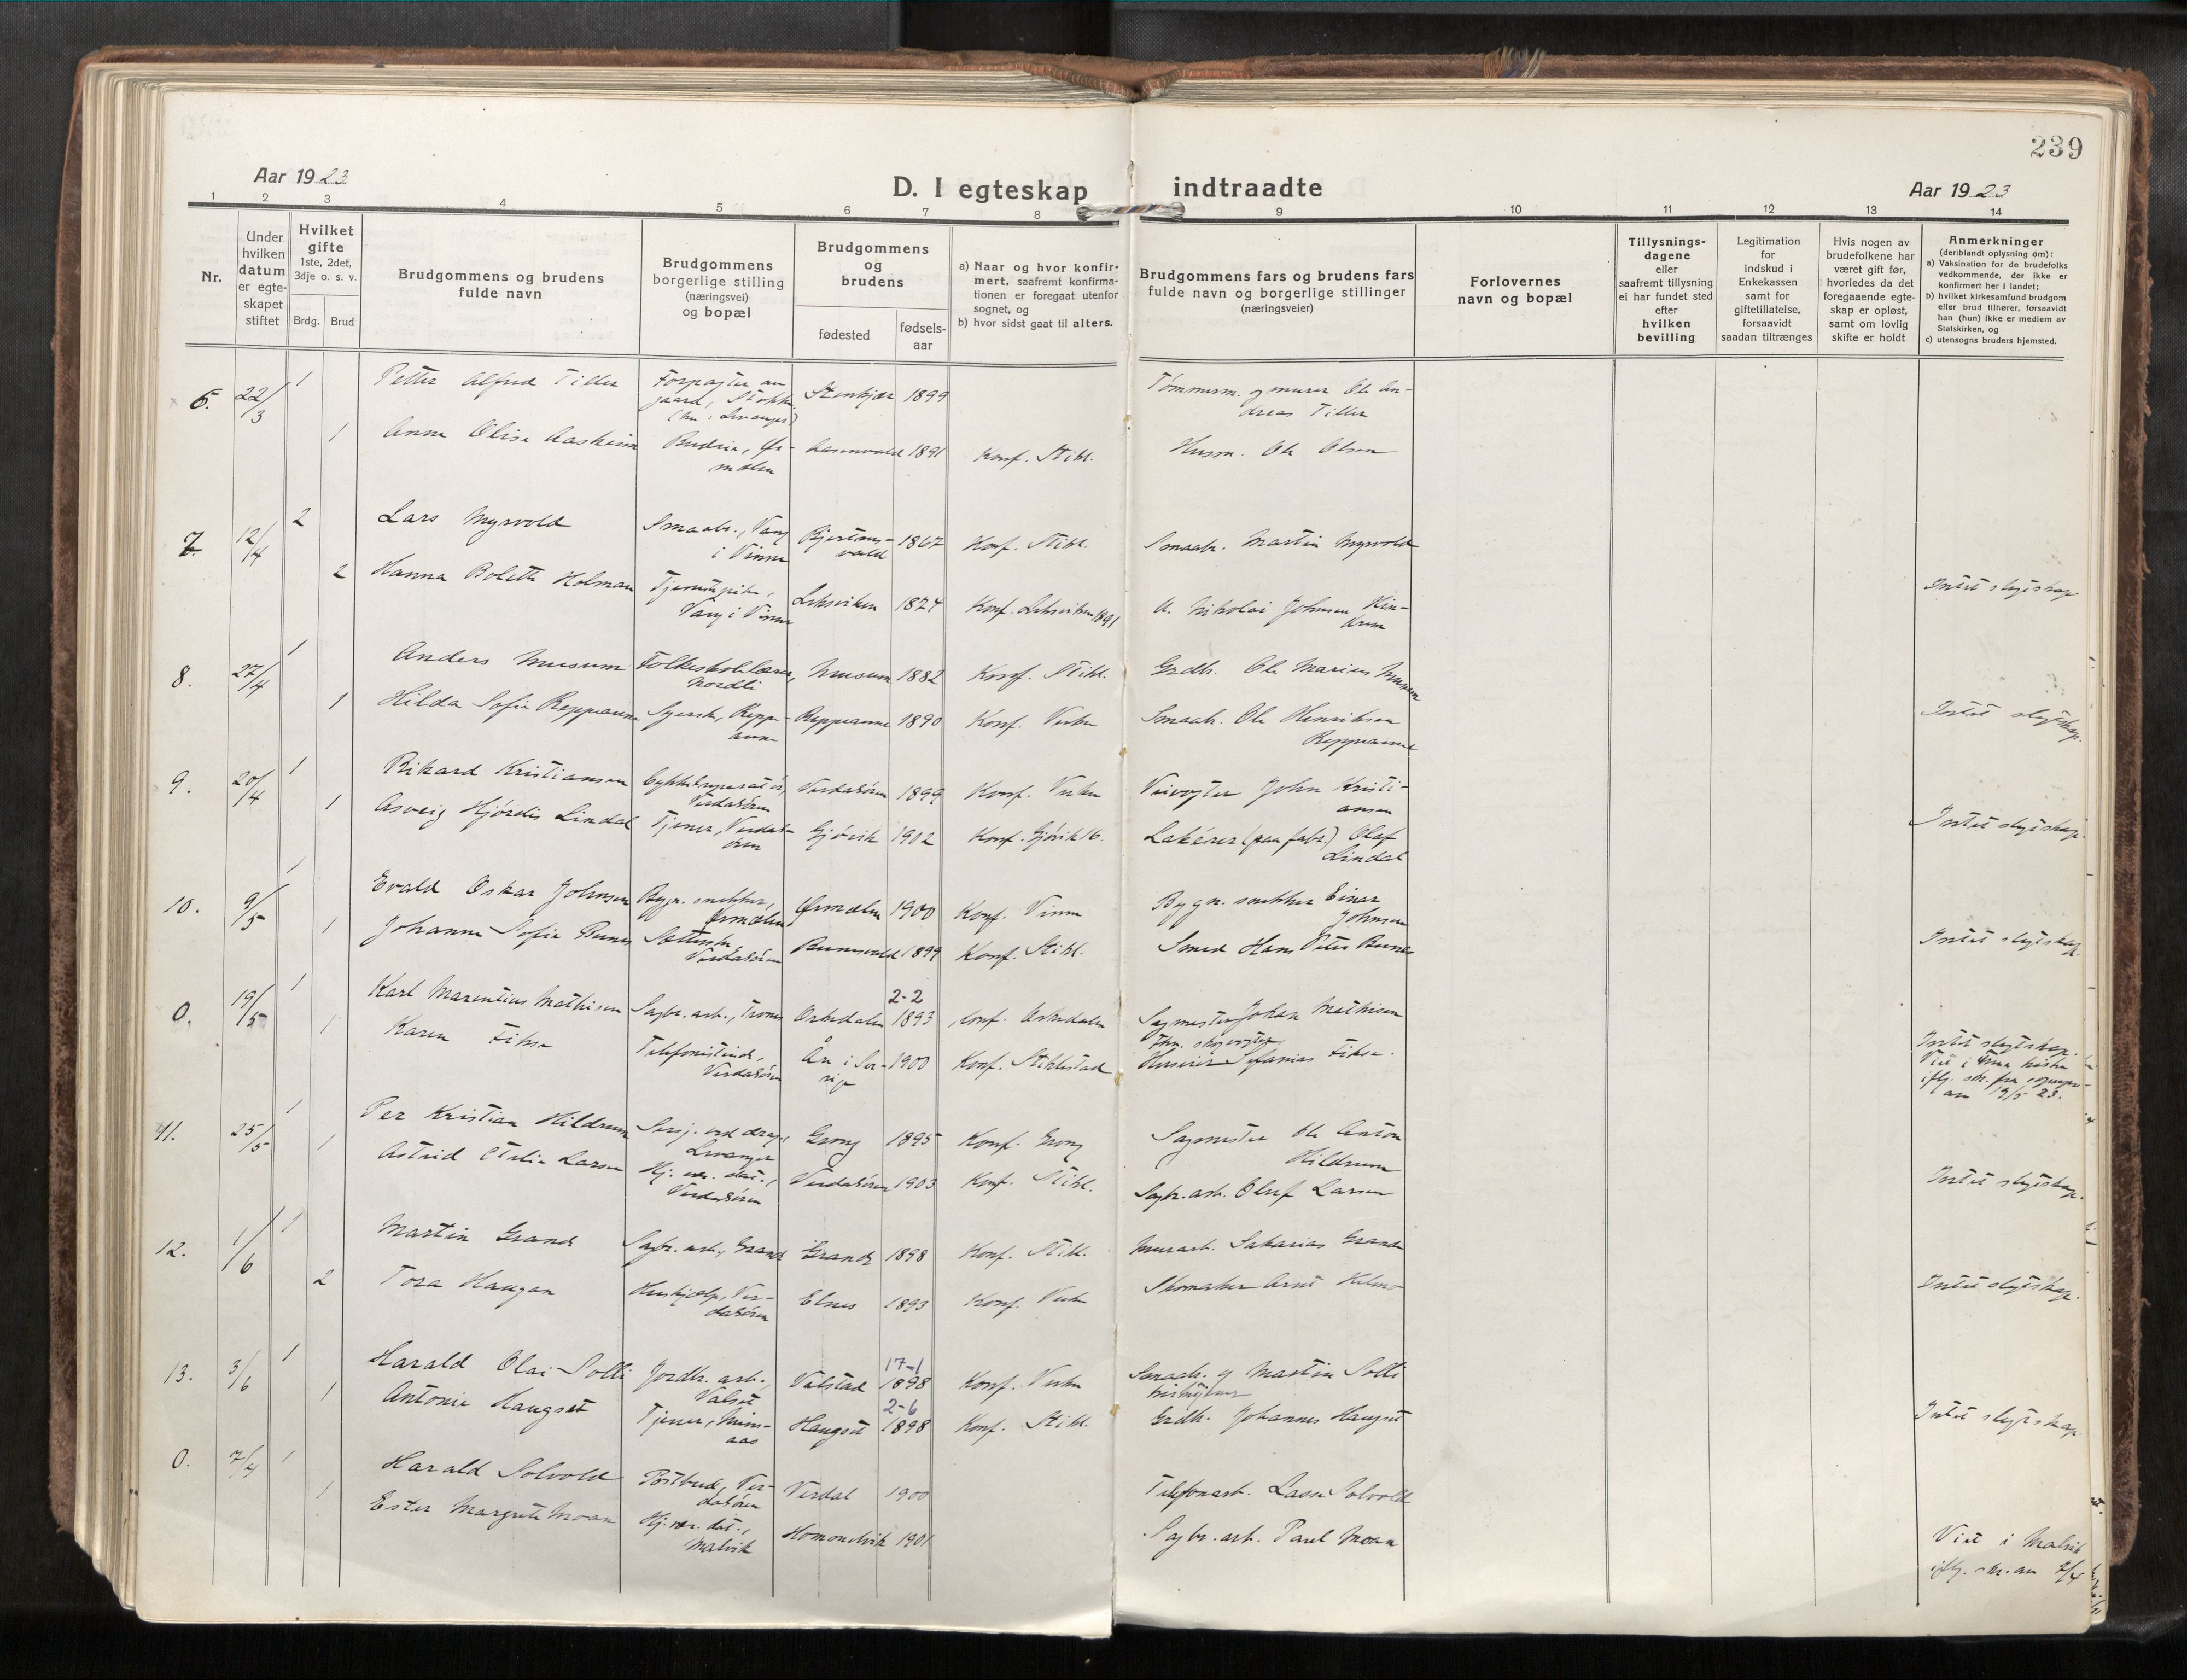 239
Aar 1923
D. I egteskap indtraadte
Aar 1923
1 2 3 4 5 6 7 8 9 10 11 12 13 14
Nr.
Under hvilken datum er egte-skapet stiftet
Hvilket gifte
1ste, 2det, 3dje o. s. v.
Brdg. Brud
Brudgommens og brudens fulde navn
Brudgommens borgerlige stilling (næringsvei) og bopæl
Brudgommens og brudens
fødested
fødsels-aar
a) Naar og hvor konfir-mert, saafremt konfirma-tionen er foregaat utenfor sognet, og
b) hvor sidst gaat til alters.
Brudgommens fars og brudens fars fulde navn og borgerlige stillinger (næringsveier)
Forlovernes navn og bopæl
Tillysnings-dagene eller saafremt tillysning ei har fundet sted efter hvilken bevilling
Legitimation for indskud i Enkekassen samt for giftetillatelse, forsaavidt saadan tiltrænges
Hvis nogen av brudefolkene har været gift før, hvorledes da det foregaaende egte-skap er opløst, samt om lovlig skifte er holdt
Anmerkninger
(deriblandt oplysning om):
a) Vaksination for de brudefolks vedkommende, der ikke er konfirmert her i landet;
b) hvilket kirkesamfund brudgom eller brud tilhører, forsaavidt han (hun) ikke er medlem av Statskirken, og
c) utensogns bruders hjemsted.
6. 22/3 1 Petter Alfred Tiller
Forpagter av gaard, Stenkjær 1899
Tømmerm. og murer Ole An-
dreas Tiller
1 Anna Olise Aasheim
Budeie, Ør-
mælen 1891 Konf. Stikl. Husm. Ole Olsen
7. 12/4 2 Lars Myrvold
Smaabr., Vang
i Vinne 1867 Konf. Stikl. Smaabr. Martin Myrvold
2 Hanna Bolette Holman
Tjenestepike,
Vang i Vinne Leksviken 1874 Konf. Leksviken 1891 Nikolai Johnsen Hin-
drum
Intet slegtskap
8. 27/4 1 Anders Musum
Folkeskolelærer,
Nordli Musum 1882 Konf. Stikl. Grdbr. Ole Marius Musum
1 Hilda Sofie Reppeaune
Syerske, Reppe-
aune Reppeaune 1890 Konf. Vuku Smaabr. Ole Henriksen
Reppeaune
Intet slegtskap.
9. 20/4 1 Rikard Kristiansen
Cykkelreparatør,
Verdalsøren Verdalsøren 1899 Konf. Vuku Veivogter John Kristi-
ansen
1 Asveig Hjørdis Lindal
Tjener, Verdals-
øren Gjøvik 1902 Konf. Gjøvik 16. Lakérer (paa fabr.) Olaf
Lindal
Intet slegtskap.
10. 9/5 1 Evald Oskar Johnsen
Bygn. snekker,
Ørmælen Ørmælen 1900 Konf. Vinne Bygn. snekker Einar
Johnsen
1 Johanna Sofie Bunes
Verdalsøren Bunesvald 1899 Konf. Stikl. Smed Hans Peter Bunes
Intet slegtskap.
0. 19/5 1 Karl Marentius Mathisen
Sagbr. arb., Trones Orkedalen 2-2 1893 Konf. Orkedalen Sagmester Johan Mathisen
1 Karen Fikse
Telefonistinde,
Verdalsøren Ån i Sve-
rige 1900 Konf. Stiklestad
Intet slegtskap.
19/5 23.
11. 25/5 1 Per Kristian Hildrum
Sersj. ved drag.,
Levanger Grong 1895 Konf. Grong Sagmester Ole Anton
Hildrum
1 Astrid Otelie Larsen
Hj. vær. dat.,
Verdalsøren Verdalsøren 1903 Konf. Stikl. Sagbr. arb. Oluf Larsen
Intet slegtskap.
12. 1/6 1 Martin Grande
Sagbr. arb., Grande Grande 1898 Konf. Stikl. Murarb. Sakarias Grande
2 Tora Haugan
Hushjælp, Ver-
dalsøren Elnes 1893 Konf. Vuku Skomaker Arnt Holmo
Intet slegtskap.
13. 3/6 1 Harald Olai Solli
Jordbr. arb.,
Valset Valstad 17-1 1898 Konf. Vuku Smaabr. og Martin Solli
1 Antonie Haugset
Tjener, Mins-
aas Haugset 2-6 1898 Konf. Stikl. Grdbr. Johannes Haugset
Intet slegtskap
0. 7/4 1 Harald Solvold
Postbud, Ver-
dalsøren Verdal 1900 Telefonarb. Lasse Solvold
1 Ester Margrete Moan
Hj. vær. dat.,
Malvik Hommelvik 1901 Sagbr. arb. Paul Moan
Viet i Malvik
iflg. m. av 7/4